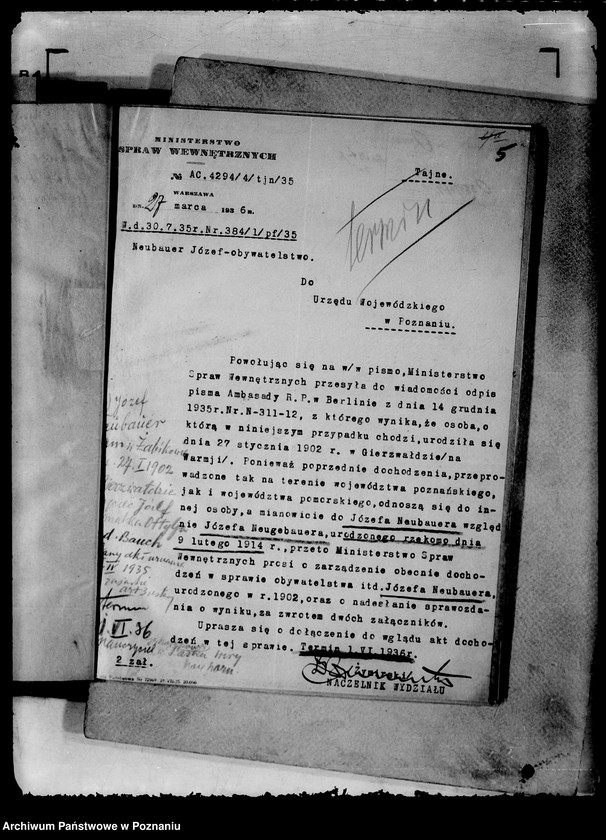 5
MINISTERSTWO
SPRAW WEWNĘTRZNYCH
№ AC.4294/4/tjn/35
Tajne.
WARSZAWA
DN. 27 marca 1936 R.
termin
W.d.30.7.35r.Nr.384/1/pf/35
Neubauer Józef-obywatelstwo.
Do
Urzędu Wojewódzkiego
w Poznaniu.
Powołując się na w/w pismo,Ministerstwo
Spraw Wewnętrznych przesyła do wiadomości odpis
pisma Ambasady R.P.w Berlinie z dnia 14 grudnia
1935r.Nr.N-311-12, z którego wynika,że osoba,o
którą w niniejszym przypadku chodzi,urodziła się
dnia 27 stycznia 1902 r. w Gierzwałdzie/na
Warmji/. Ponieważ poprzednie dochodzenia,przepro-
wadzone tak na terenie województwa poznańskiego,
jak i województwa pomorskiego,odnoszą się do in-
nej osoby,a mianowicie do Józefa Neubauera względ
nie Józefa Neugebauera,urodzonego rzekomo dnia
9 lutego 1914 r., przeto Ministerstwo Spraw
Wewnętrznych prosi o zarządzenie obecnie docho-
dzeń w sprawie obywatelstwa itd.Józefa Neubauera,
urodzonego w r.1902,oraz o nadesłanie sprawozda-
nia o wyniku,za zwrotem dwóch załączników.
Uprasza się o dołączenie do wglądu akt docho-
dzeń w tej sprawie. Termin 1 VI 1936r.
NACZELNIK WYDZIAŁU
2 zał.
Józef
24.I 1902
Bauch
1935
termin
1.VI.36
Archiwum Państwowe w Poznaniu